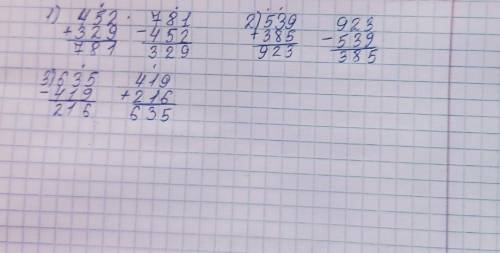 1) 452 · 781 2) 539 923
+329 -452 +385 -539
781 329 923 385
3) 635 419
-419 +216
216 635